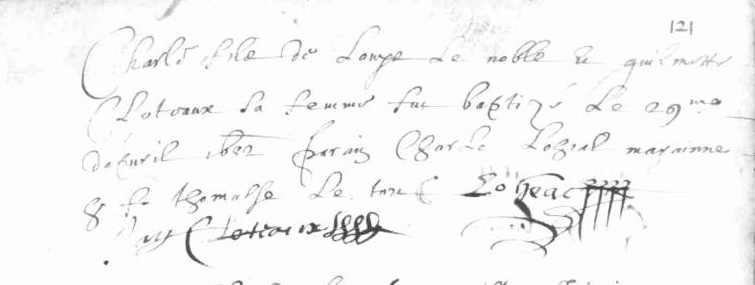 121
Charle fils de Louys Le noble et guilmette
Cloteaux sa femme fut baptizé Le 29me
d'apvril parain Charle Loheac marainne
thomasse Le
Loheac
Cloteaux